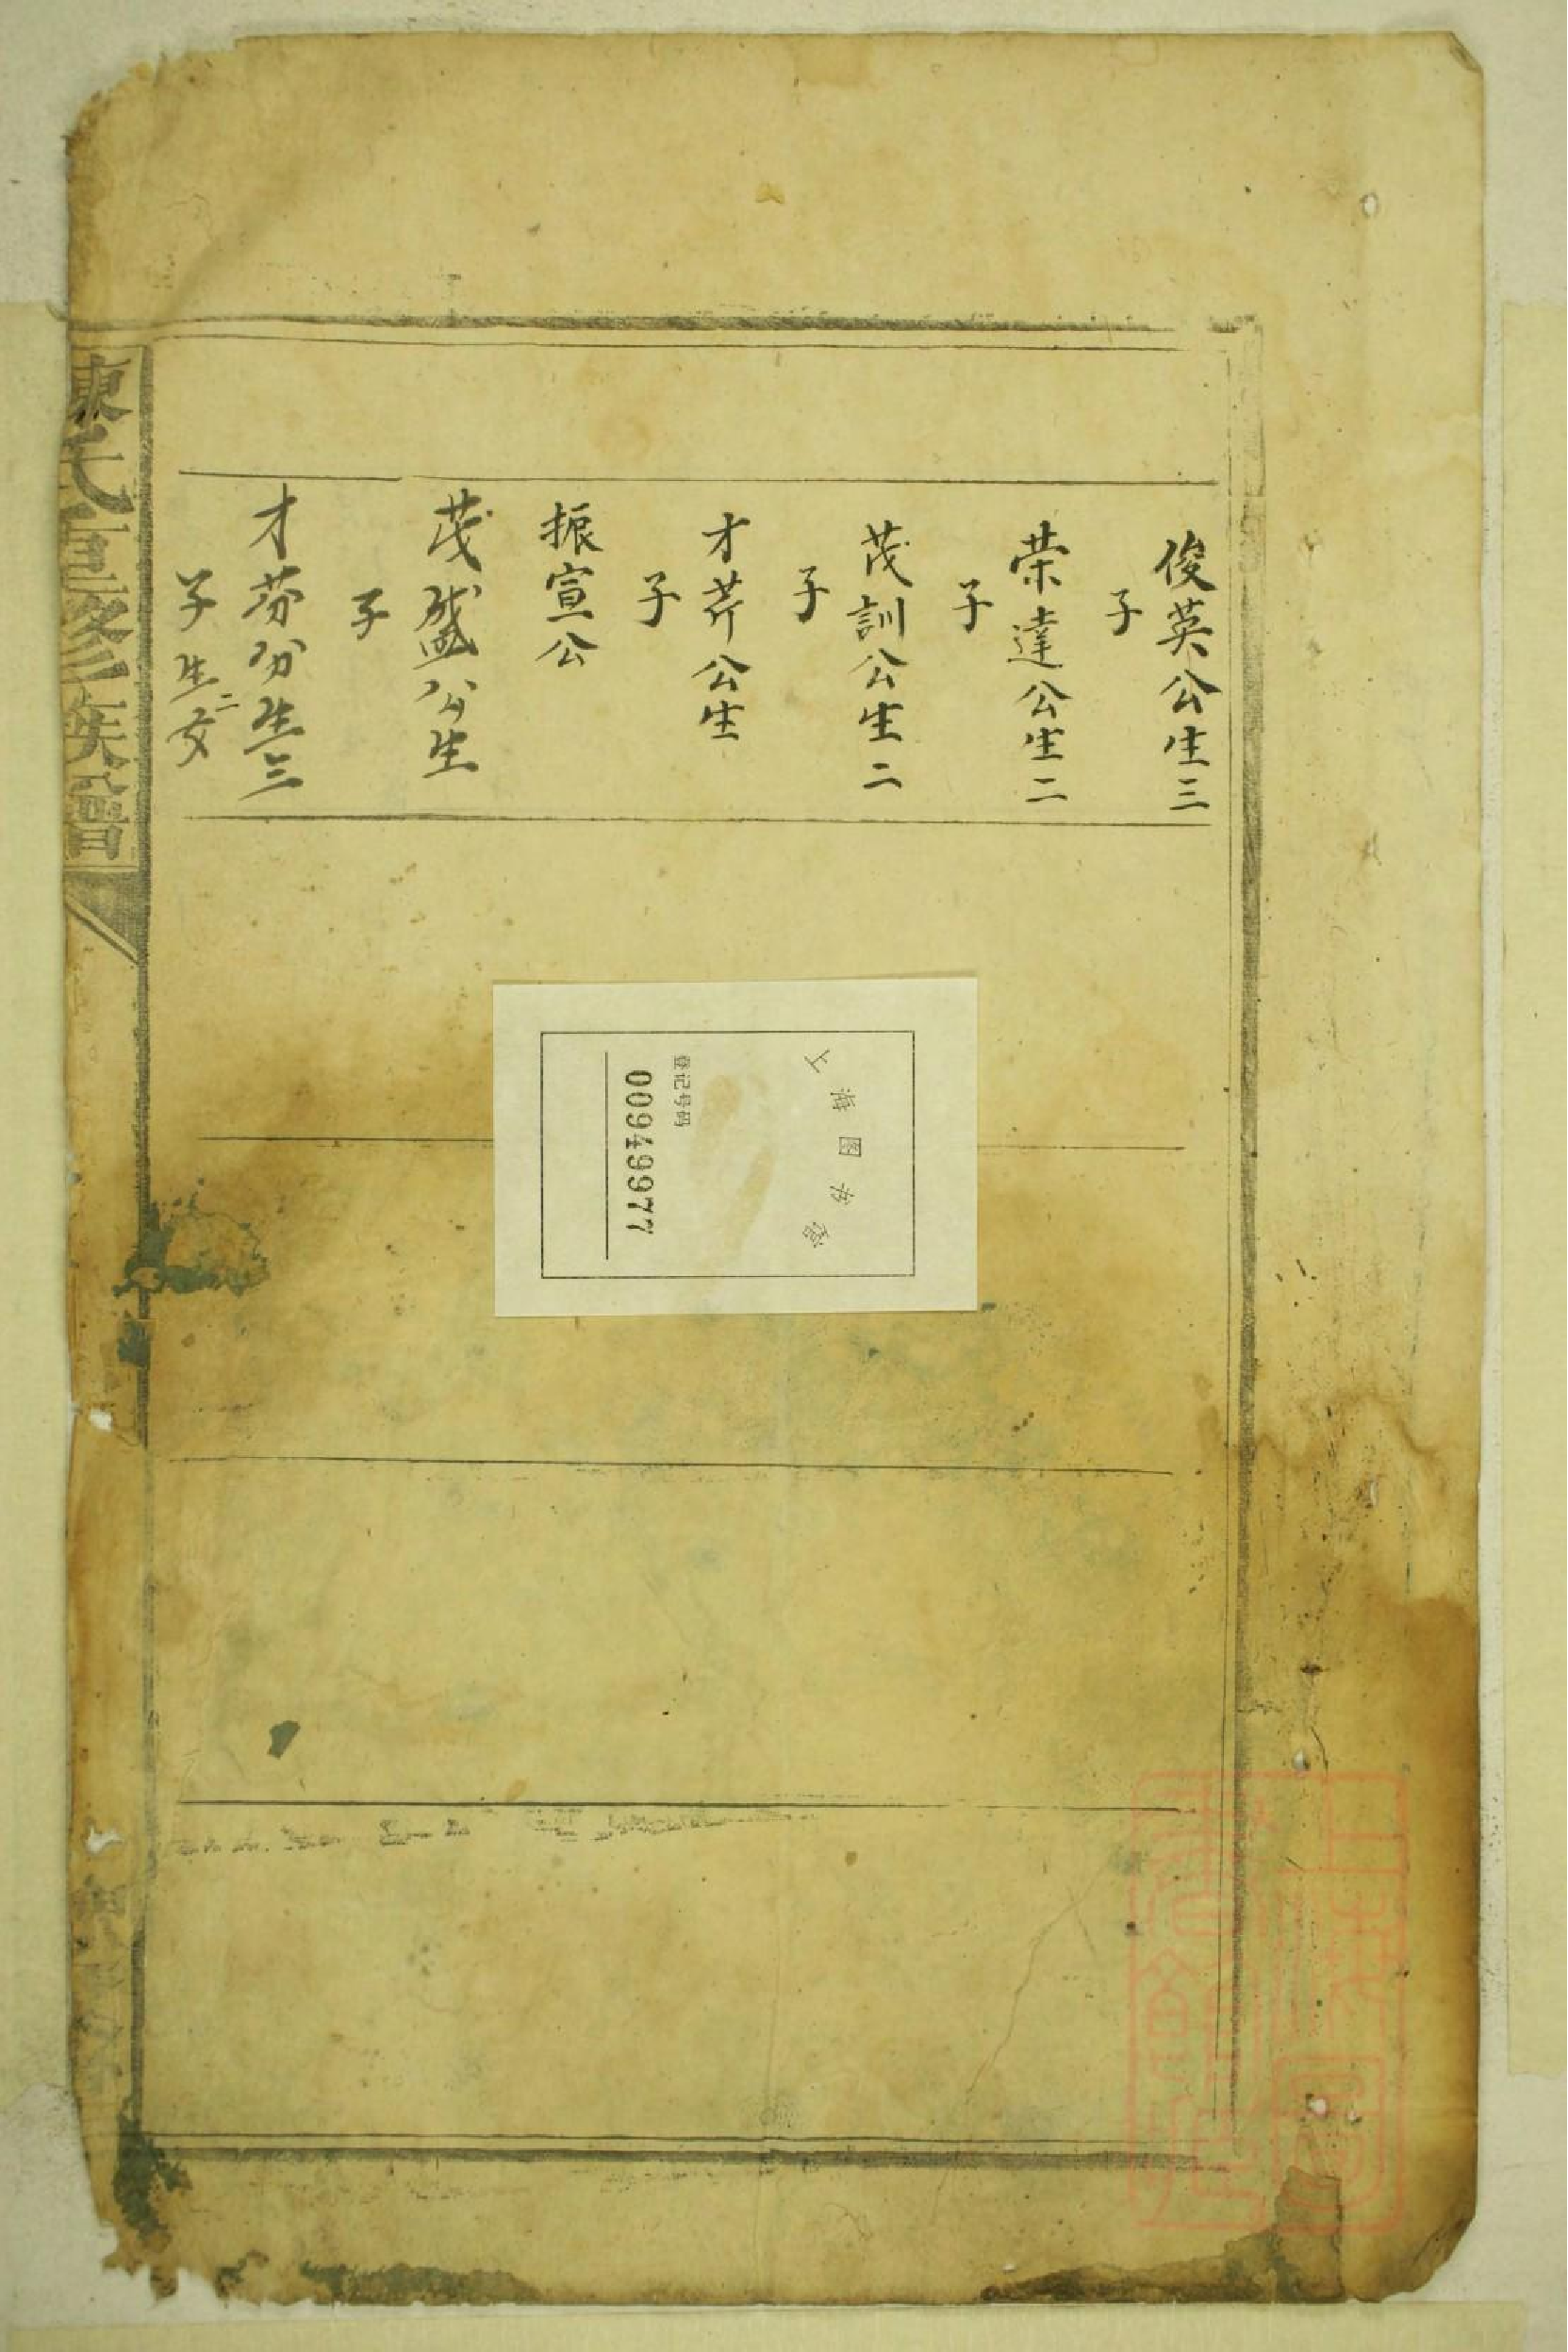 俊英公生三
子
荣達公生二
子
茂訓公生二
子
才芹公生
子
振宣公
茂盛公生
子
才芬公生三
子生二女
陳氏重修族譜
上海图书馆
登记号码
00949977